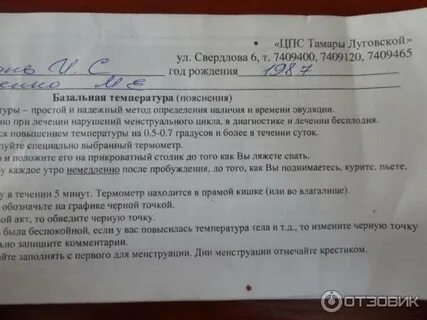 • «ЦПС Тамары Луговской»
ул. Свердлова 6, т. 7409400, 7409120, 7409465
И. С год рождения 1987
Базальная температура (пояснения)
туры – простой и надежный метод определения наличия и времени овуляции.
но при лечении нарушений менструального цикла, в диагностике и лечении бесплодия.
ся повышением температуры на 0.5-0.7 градусов и более в течении суток.
зуйте специально выбранный термометр.
и положите его на прикроватный столик до того как Вы ляжете спать.
бу каждое утро немедленно после пробуждения, до того, как Вы поднимаетесь, курите, пьете,
у в течении 5 минут. Термометр находится в прямой кишке (или во влагалище).
обозначьте на графике черной точкой.
ой акт, то обведите черную точку.
ь была беспокойной, если у вас повысилась температура тела и т.д., то измените черную точку
ьно запишите комментарии.
айте заполнять с первого для менструации. Дни менструации отмечайте крестиком.
ОТЗОВИК